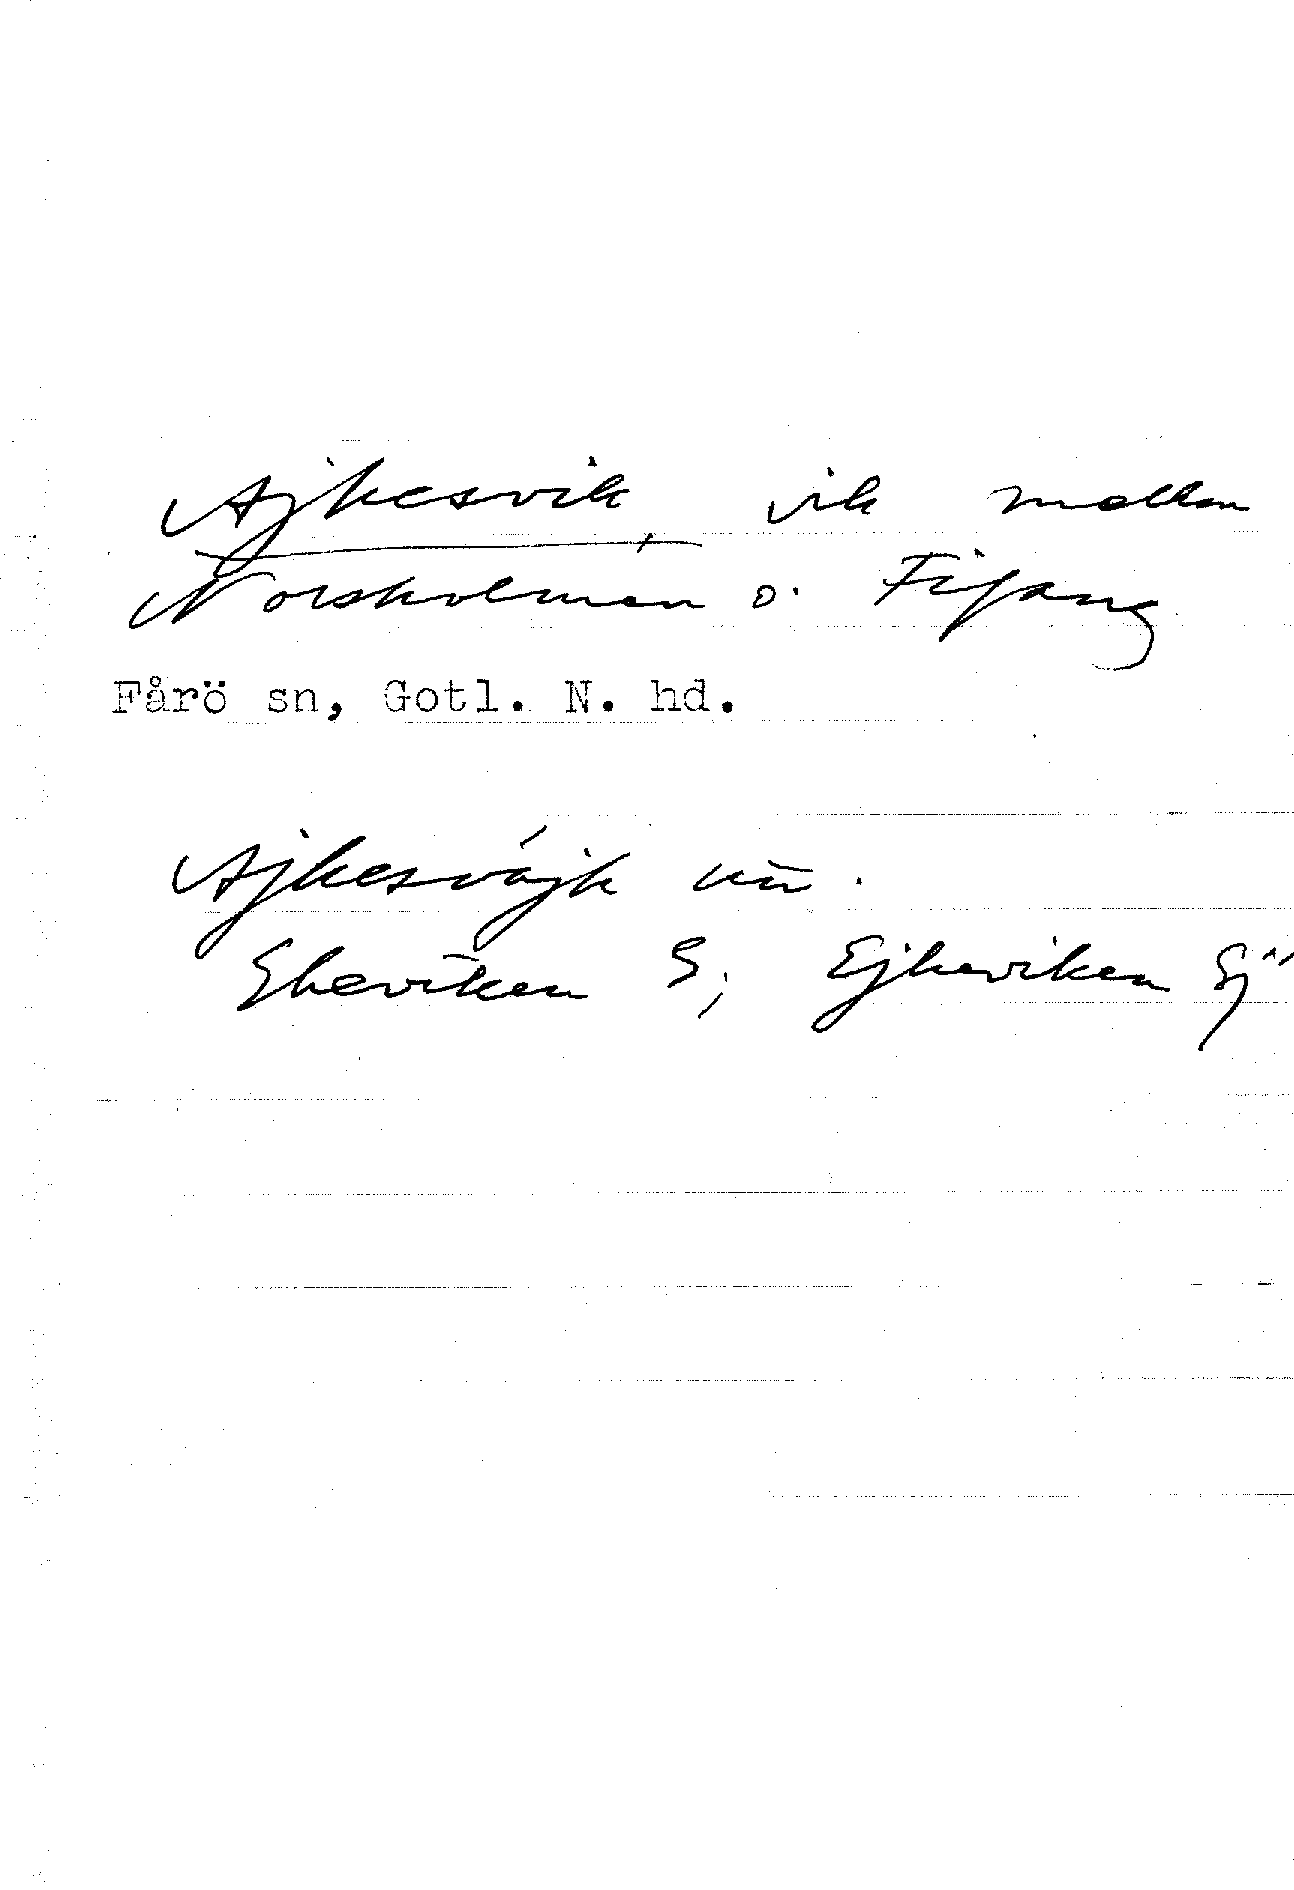 Ajkesvik, vik mellan
Norsholmen o. Fifang
Fårö sn, Gotl. N. hd.
Ajkesvájk
Ekeviken G; Ejkeviken